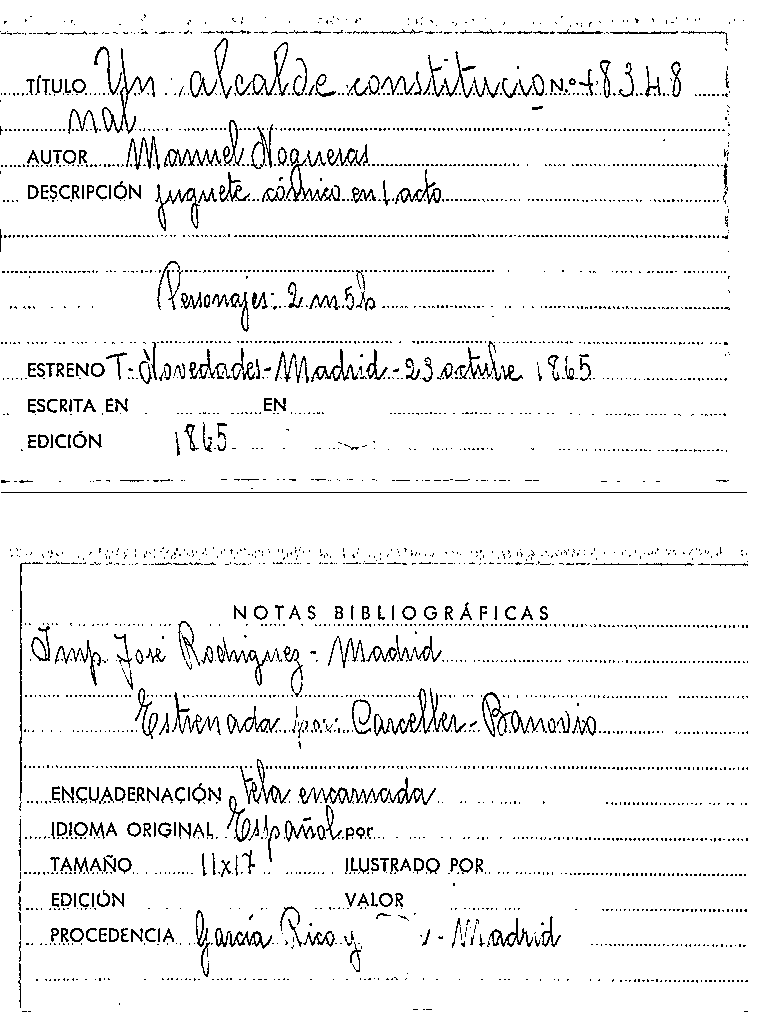 TÍTULO Un alcalde constitucio N.º 48348
nal
AUTOR Manuel Nogueras
DESCRIPCIÓN juguete cómico en 1 acto
Personajes: 2 m 5 h
ESTRENO T. Novedades - Madrid - 23 octubre 1865
ESCRITA EN EN
EDICIÓN 1865
NOTAS BIBLIOGRÁFICAS
Imp. José Rodriguez - Madrid
Estrenada por: Carceller - Banovio
ENCUADERNACIÓN tela encarnada
IDIOMA ORIGINAL Español por
TAMAÑO 11x17 ILUSTRADO POR
EDICIÓN VALOR
PROCEDENCIA García Rico y - Madrid